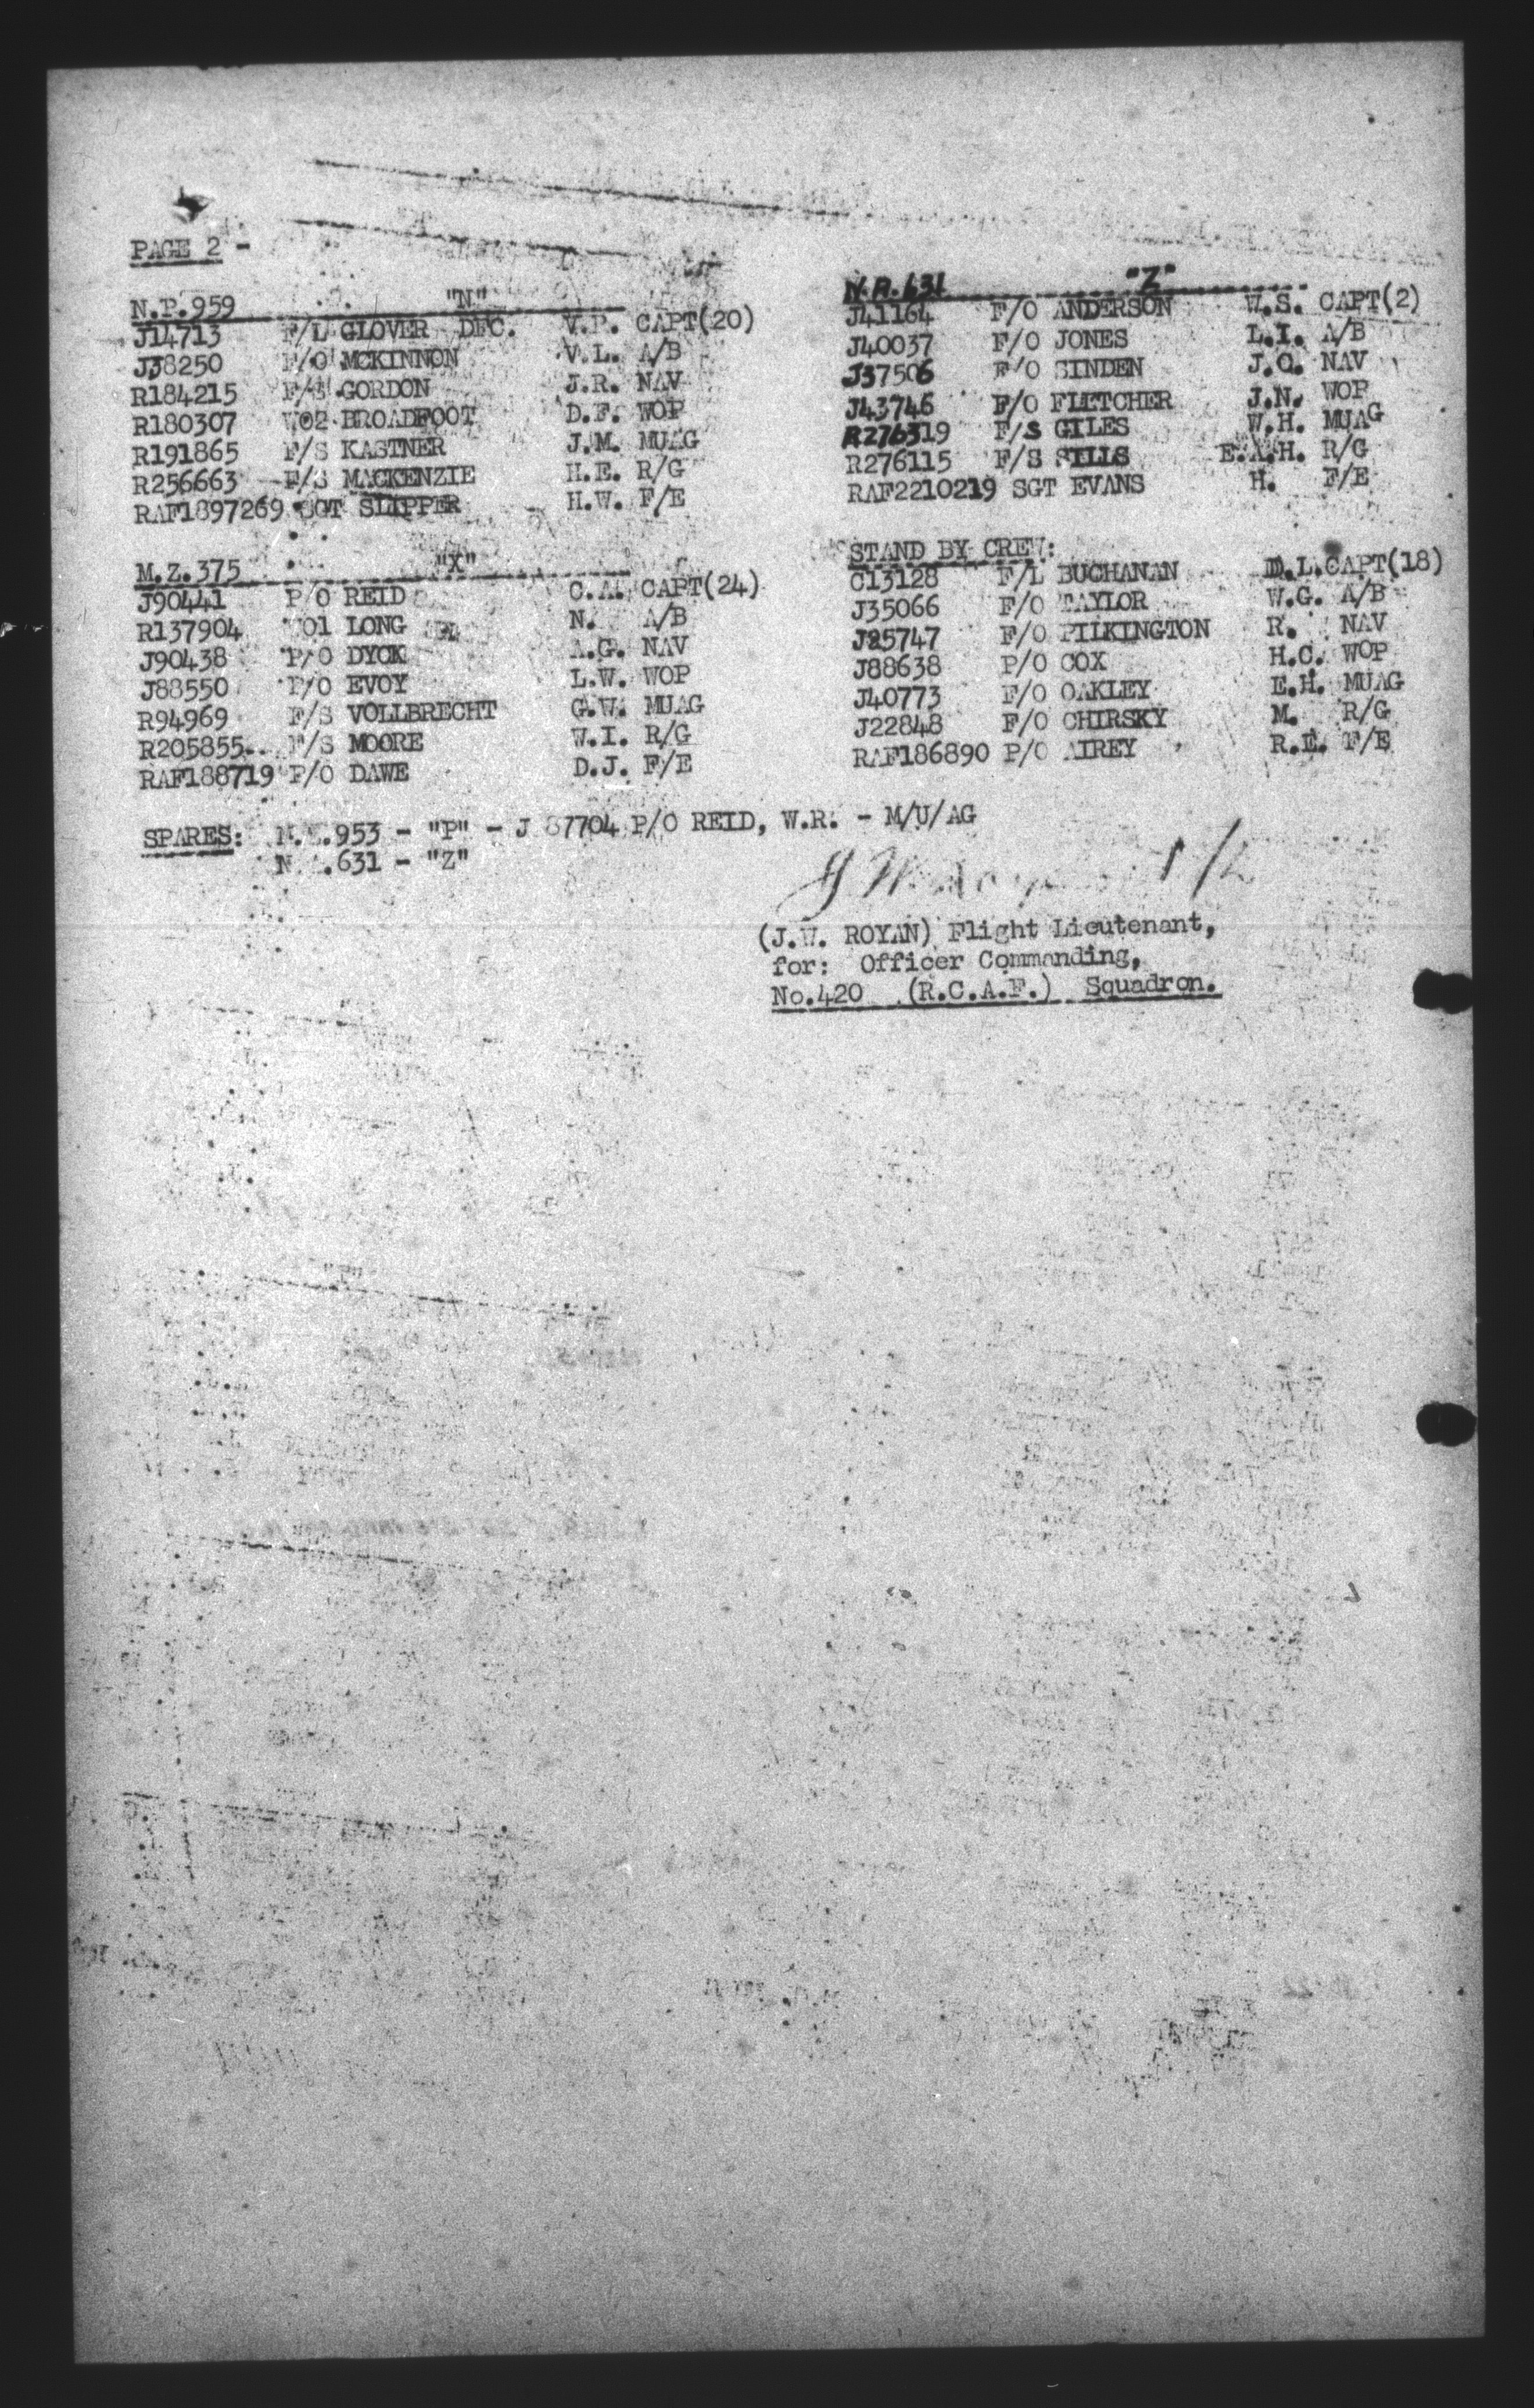 PAGE 2 -
N.P.959 "N"
J14713 F/L GLOVER DFC. V.P. CAPT(20)
J38250 F/O MCKINNON V.L. A/B
R184215 F/S GORDON J.R. NAV
R180307 WO2 BROADFOOT D.F. WOP
R191865 F/S KASTNER J.M. MUAG
R256663 F/S MACKENZIE H.E. R/G
RAF1897269 SGT SLIPPER H.W. F/E
M.Z.375 "X"
J90441 P/O REID C.A. CAPT(24)
R137904 WO1 LONG N. A/B
J90438 P/O DYCK A.G. NAV
J88550 P/O EVOY L.W. WOP
R94969 F/S VOLLBRECHT G.W. MUAG
R205855 F/S MOORE W.I. R/G
RAF188719 P/O DAWE D.J. F/E
N.A.631 "Z"
J41164 F/O ANDERSON W.S. CAPT(2)
J40037 F/O JONES L.I. A/B
J37506 F/O SINDEN J.O. NAV
J43746 F/O FLETCHER J.N. WOP
R276319 F/S GILES W.H. MUAG
R276115 F/S SILLS E.A.H. R/G
RAF2210219 SGT EVANS H. F/E
STAND BY CREW:
C13128 F/L BUCHANAN D.L. CAPT(18)
J35066 F/O TAYLOR W.G. A/B
J25747 F/O PILKINGTON R. NAV
J88638 P/O COX H.C. WOP
J40773 F/O OAKLEY E.H. MUAG
J22848 F/O CHIRSKY M. R/G
RAF186890 P/O AIREY R.E. F/E
SPARES: 953 - "P" - J 87704 P/O REID, W.R. - M/U/AG
N. .631 - "Z"
(J.W. ROYAN) Flight Lieutenant,
for: Officer Commanding,
No.420 (R.C.A.F.) Squadron.